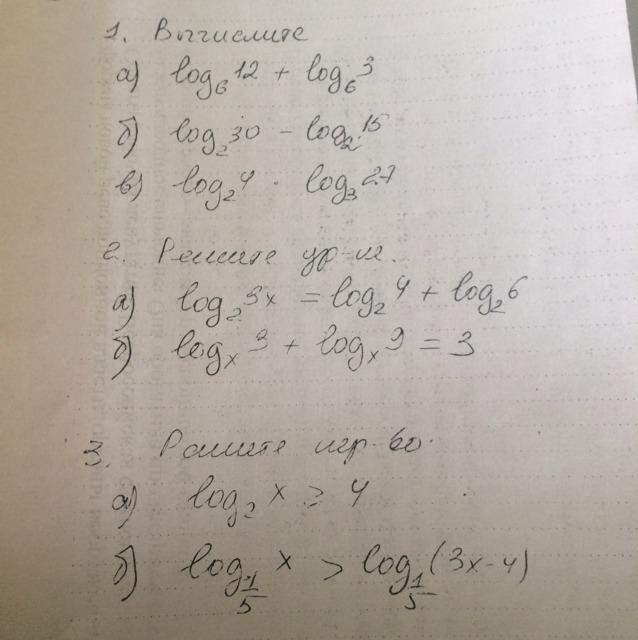 1. Вычислите
а) log₆12 + log₆3
б) log₂30 - log₂15
в) log₂4 · log₃27
2. Решите ур-ие.
а) log₂3x = log₂4 + log₂6
б) logₓ3 + logₓ9 = 3
3. Решите нер-во.
а) log₂x ≥ 4
б) log_(1/5) x > log_(1/5) (3x-4)